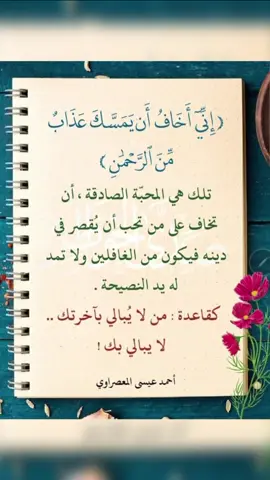 ﴿إِنِّيٓ أَخَافُ أَن يَمَسَّكَ عَذَابٌ
مِّنَ ٱلرَّحْمَٰنِ﴾
تلك هي المحبّة الصادقة ، أن
تخاف على من تحب أن يُقصر في
دينه فيكون من الغافلين ولا تمد
له يد النصيحة .
كقاعدة : من لا يُبالي بآخرتك ..
لا يبالي بك !
أحمد عيسى المعصراوي